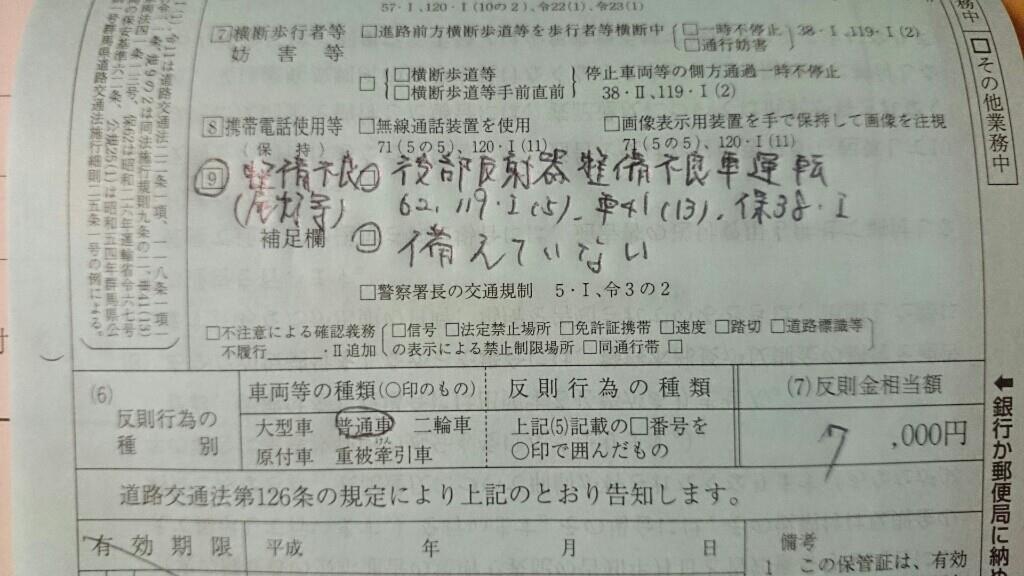 57・I、120・I(10の2)、令22(1)、令23(1)
7 横断歩行者等 □進路前方横断歩道等を歩行者等横断中 □一時不停止 38・I、119・I(2)
妨害等 □通行妨害
□ □横断歩道等 停止車両等の側方通過一時不停止
□横断歩道等手前直前 38・II、119・I(2)
8 携帯電話使用等 □無線通話装置を使用 □画像表示用装置を手で保持して画像を注視
(保持) 71(5の5)、120・I(11) 71(5の5)、120・I(11)
9 整備不良 □ 後部反射器整備不良車運転
(尾灯等) 62、119・I(5)、車41(13)、保38・I
補足欄 □ 備えていない
□警察署長の交通規制 5・I、令3の2
□不注意による確認義務 □信号 □法定禁止場所 □免許証携帯 □速度 □踏切 □道路標識等
不履行 ・II追加 の表示による禁止制限場所 □同通行帯 □
(6) 車両等の種類(○印のもの) 反則行為の種類 (7)反則金相当額
反則行為の種別 大型車 普通車 二輪車 上記(5)記載の□番号を 7,000円
原付車 重被牽引車 ○印で囲んだもの
けん
道路交通法第126条の規定により上記のとおり告知します。
有効期限 平成 年 月 日 備考
1 この保管証は、有効
務中 □その他業務中
←銀行か郵便局に納め